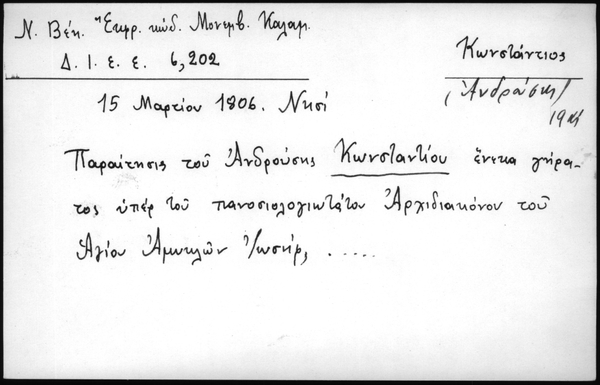 Ν. Βέη. "Εκφρ. κώδ. Μονεμβ. Καλαμ.
Δ. Ι. Ε. Ε. 6,202
Κωνστάντιος
(Ἀνδρούσης)
15 Μαρτίου 1806. Νησί
Παραίτησις τοῦ Ἀνδρούσης Κωνσταντίου ἕνεκα γήρα-
τος ὑπέρ τοῦ πανοσιολογιωτάτου Ἀρχιδιακόνου τοῦ
Ἁγίου Ἀμυκλῶν Ἰωσήφ, .....